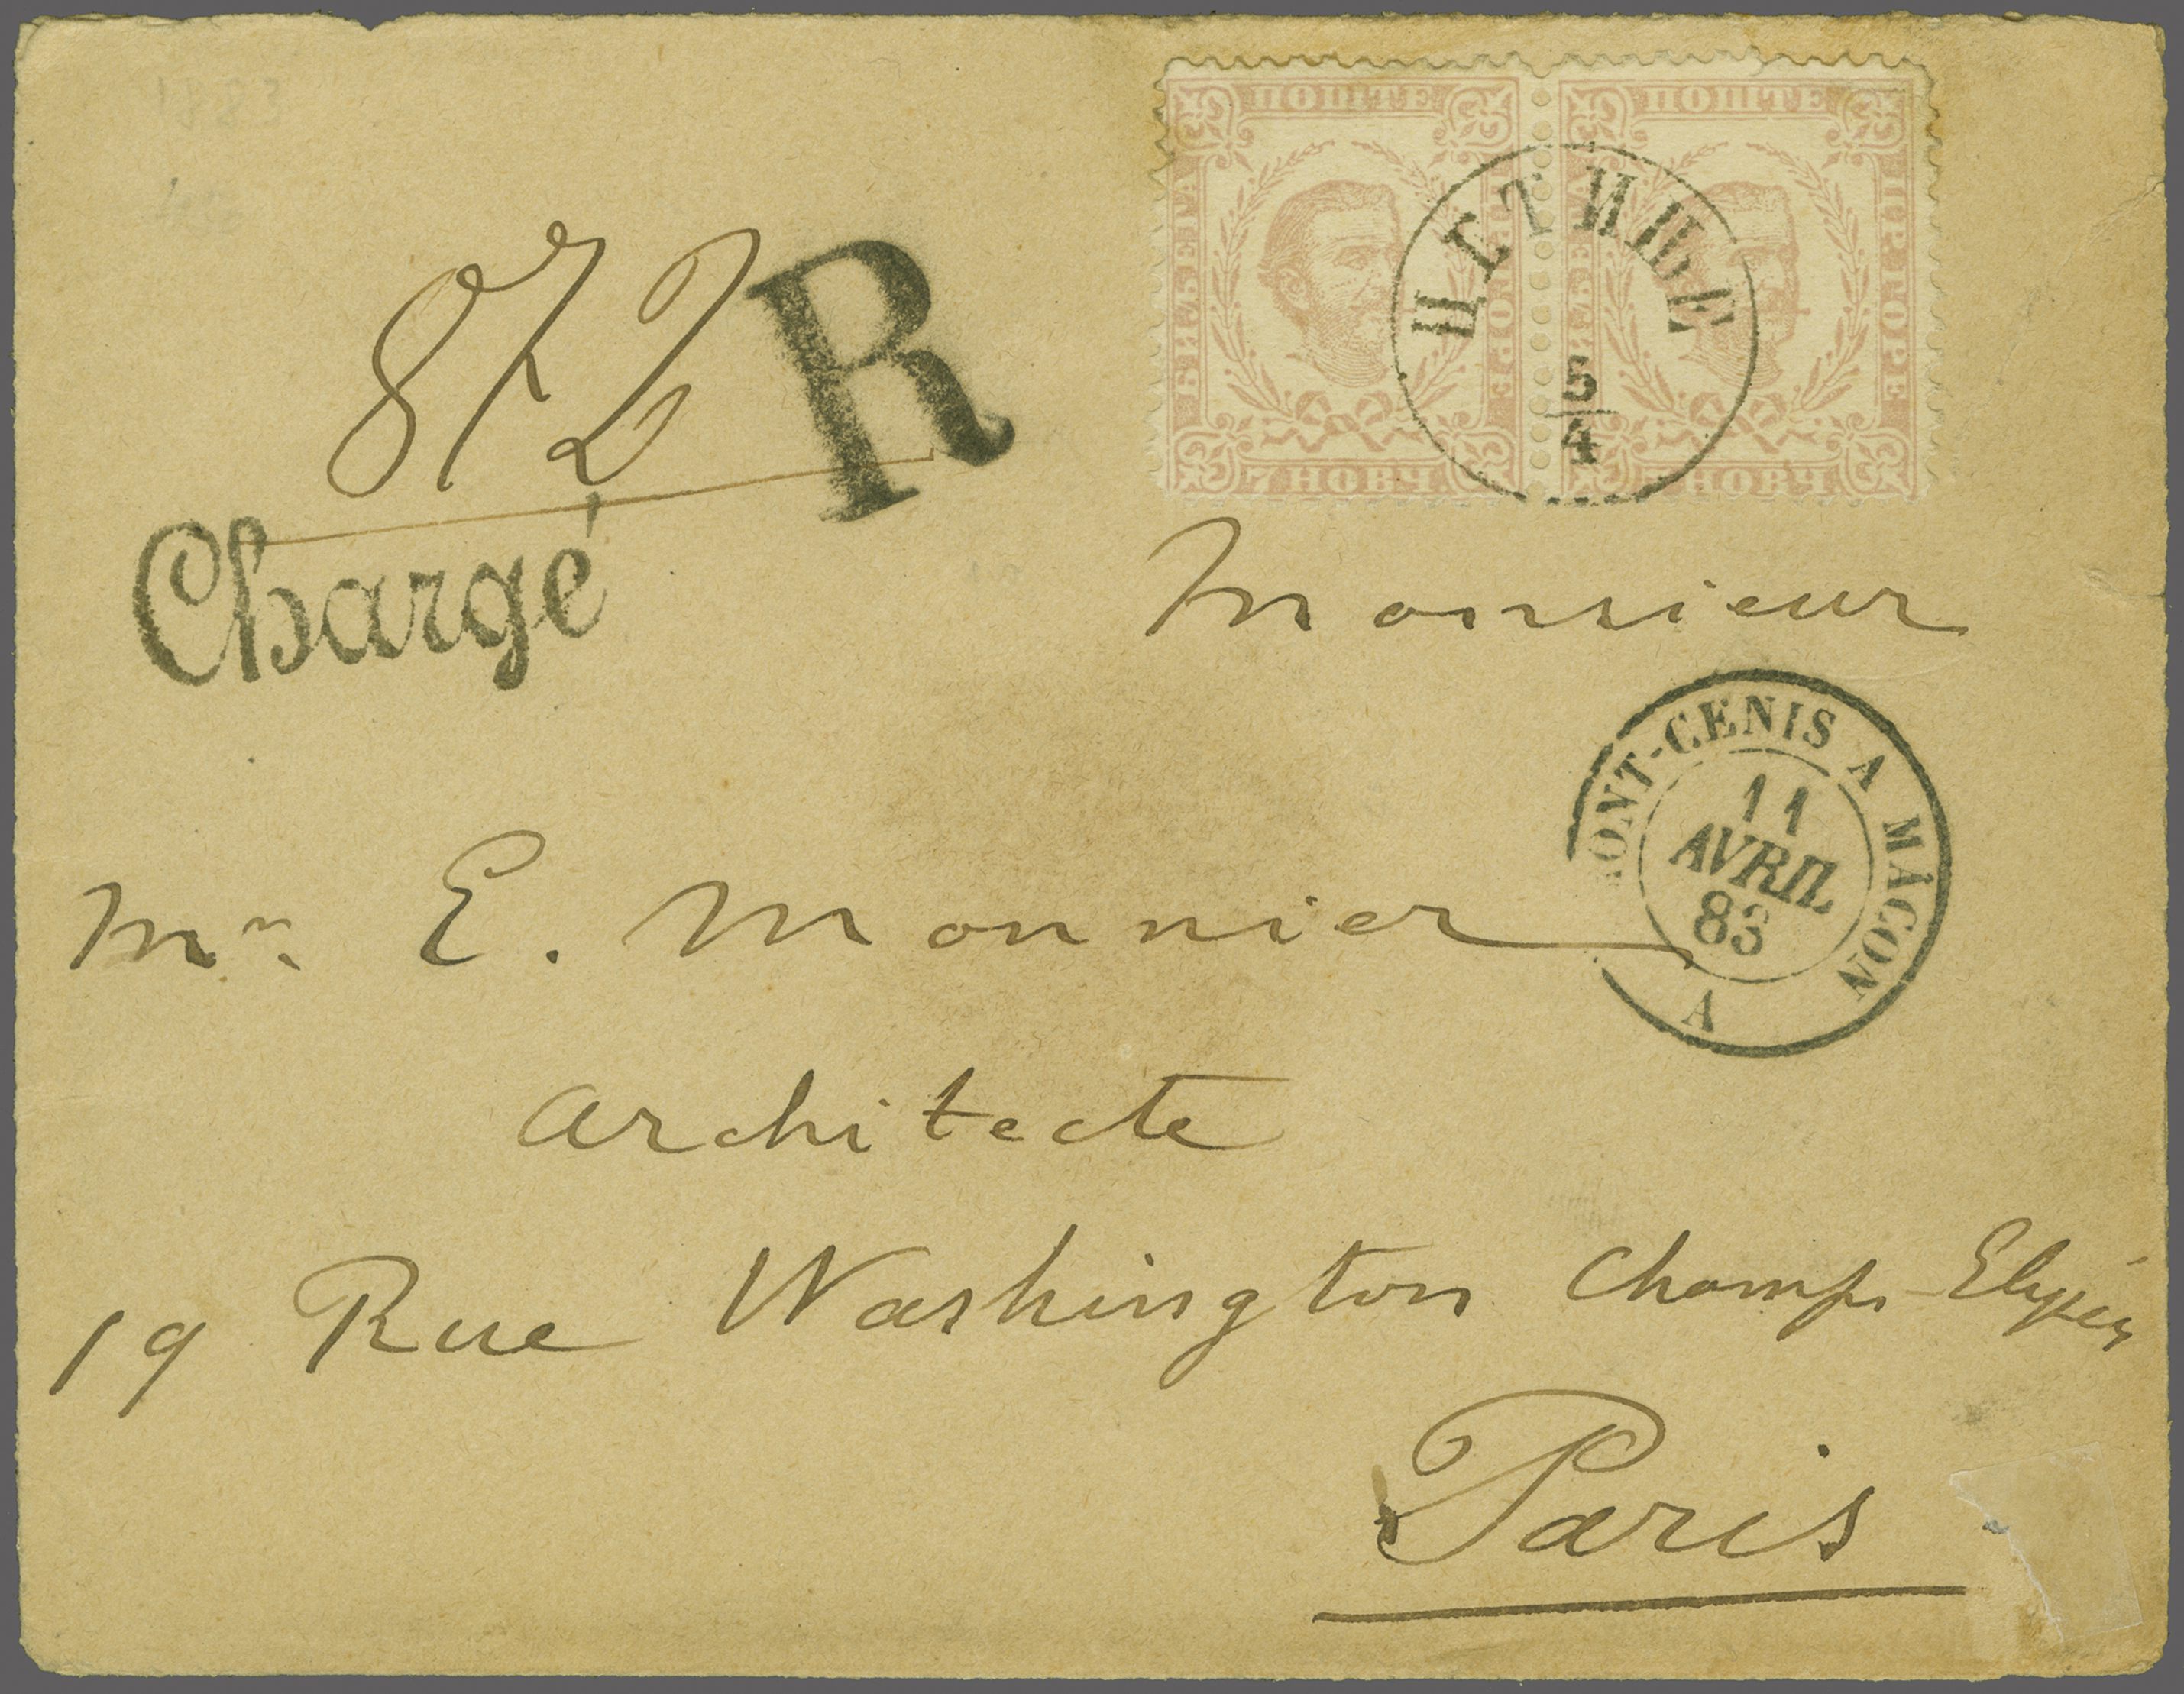 1883
ПОШТЕ ПОШТЕ
БИЉЕГА
ПОР ГОРЕ
7 НОВЧ. 7 НОВЧ.
ЦЕТИЊЕ
5
4
872
R
Chargé
Monsieur
MONT-CENIS A MÂCON
11
AVRIL
83
A
Mr. E. Monnier
Architecte
19 Rue Washington Champs-Elysées
Paris